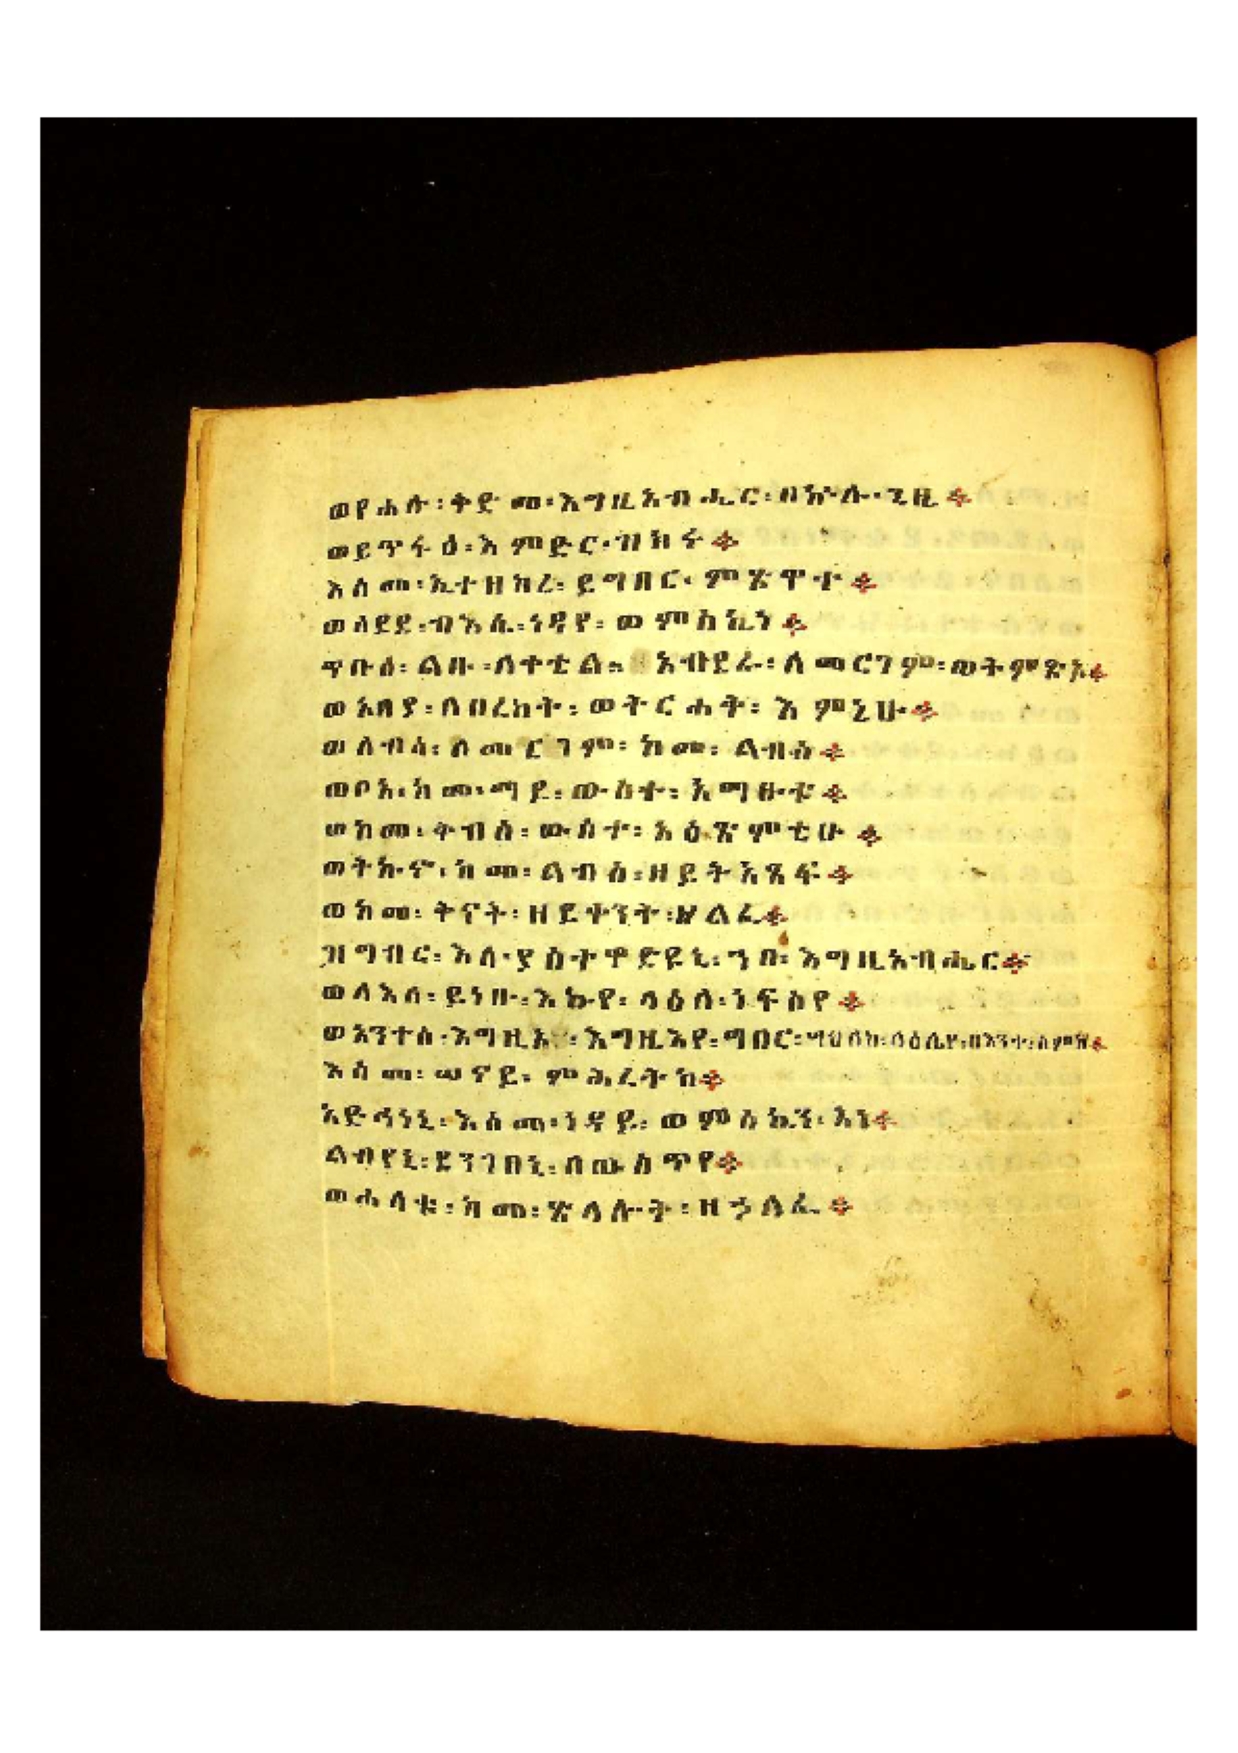 ወየሐሉ፡ቅድመ፡እግዚአብሔር፡በኵሉ፡ጊዜ፨
ወይጥፋዕ፡እምድር፡ዝክሩ፨
እስመ፡ኢተዘከረ፡ይግበር፡ምጽዋተ፨
ወሰደደ፡ብእሴ፡ነዳየ፡ወምስኪነ፨
ጥቡዕ፡ልቡ፡ለቀቲል። አብደራ፡ለመርገም፡ወትምጽኦ፨
ወአበያ፡ለበረከት፡ወትርሐቅ፡እምኔሁ፨
ወለብሳ፡ለመርገም፡ከመ፡ልብስ፨
ወቦአ፡ከመ፡ማይ፡ውስተ፡አማዑቱ፨
ወከመ፡ቅብዕ፡ውስተ፡አዕጽምቲሁ፨
ወትኩኖ፡ከመ፡ልብስ፡ዘይትአጸፍ፨
ወከመ፡ቅናት፡ዘይቀንት፡ዘልፈ፨
ዝግብር፡እለ፡ያስተዋድዩኒ፡ኀበ፡እግዚአብሔር፨
ወለእለ፡ይነቡ፡እኩየ፡ላዕለ፡ነፍስየ፨
ወአንተሰ፡እግዚኦ፡እግዚእየ፡ግበር፡ሣህለከ፡ላዕሌየ፡በእንተ፡ስምከ፨
እስመ፡ሠናይ፡ምሕረትከ፨
አድኅነኒ፡እስመ፡ነዳይ፡ወምስኪን፡አነ፨
ልብየኒ፡ደንገፀኒ፡በውስጥየ፨
ወሐለቁ፡ከመ፡ጽላሎት፡ዘኃለፈ፨